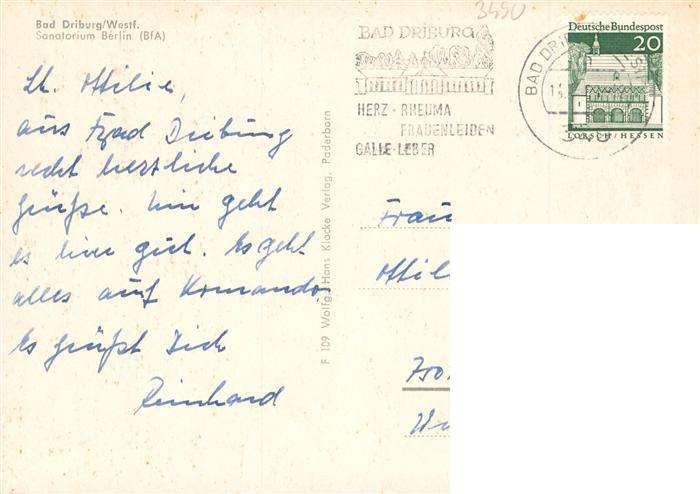 Bad Driburg/Westf.
Sanatorium Berlin (BfA)
3490
BAD DRIBURG
HERZ · RHEUMA
FRAUENLEIDEN
GALLE · LEBER
BAD DRI
Deutsche Bundespost
20
LORSCH/HESSEN
Lb. Ottilie,
aus Bad Driburg
recht herzliche
Grüße. Mir geht
es hier gut. Es geht
alles auf Komando.
Es grüßt Dich
Reinhard
F 109 Wolfg. Hans Klocke Verlag, Paderborn
Frau
Ottil